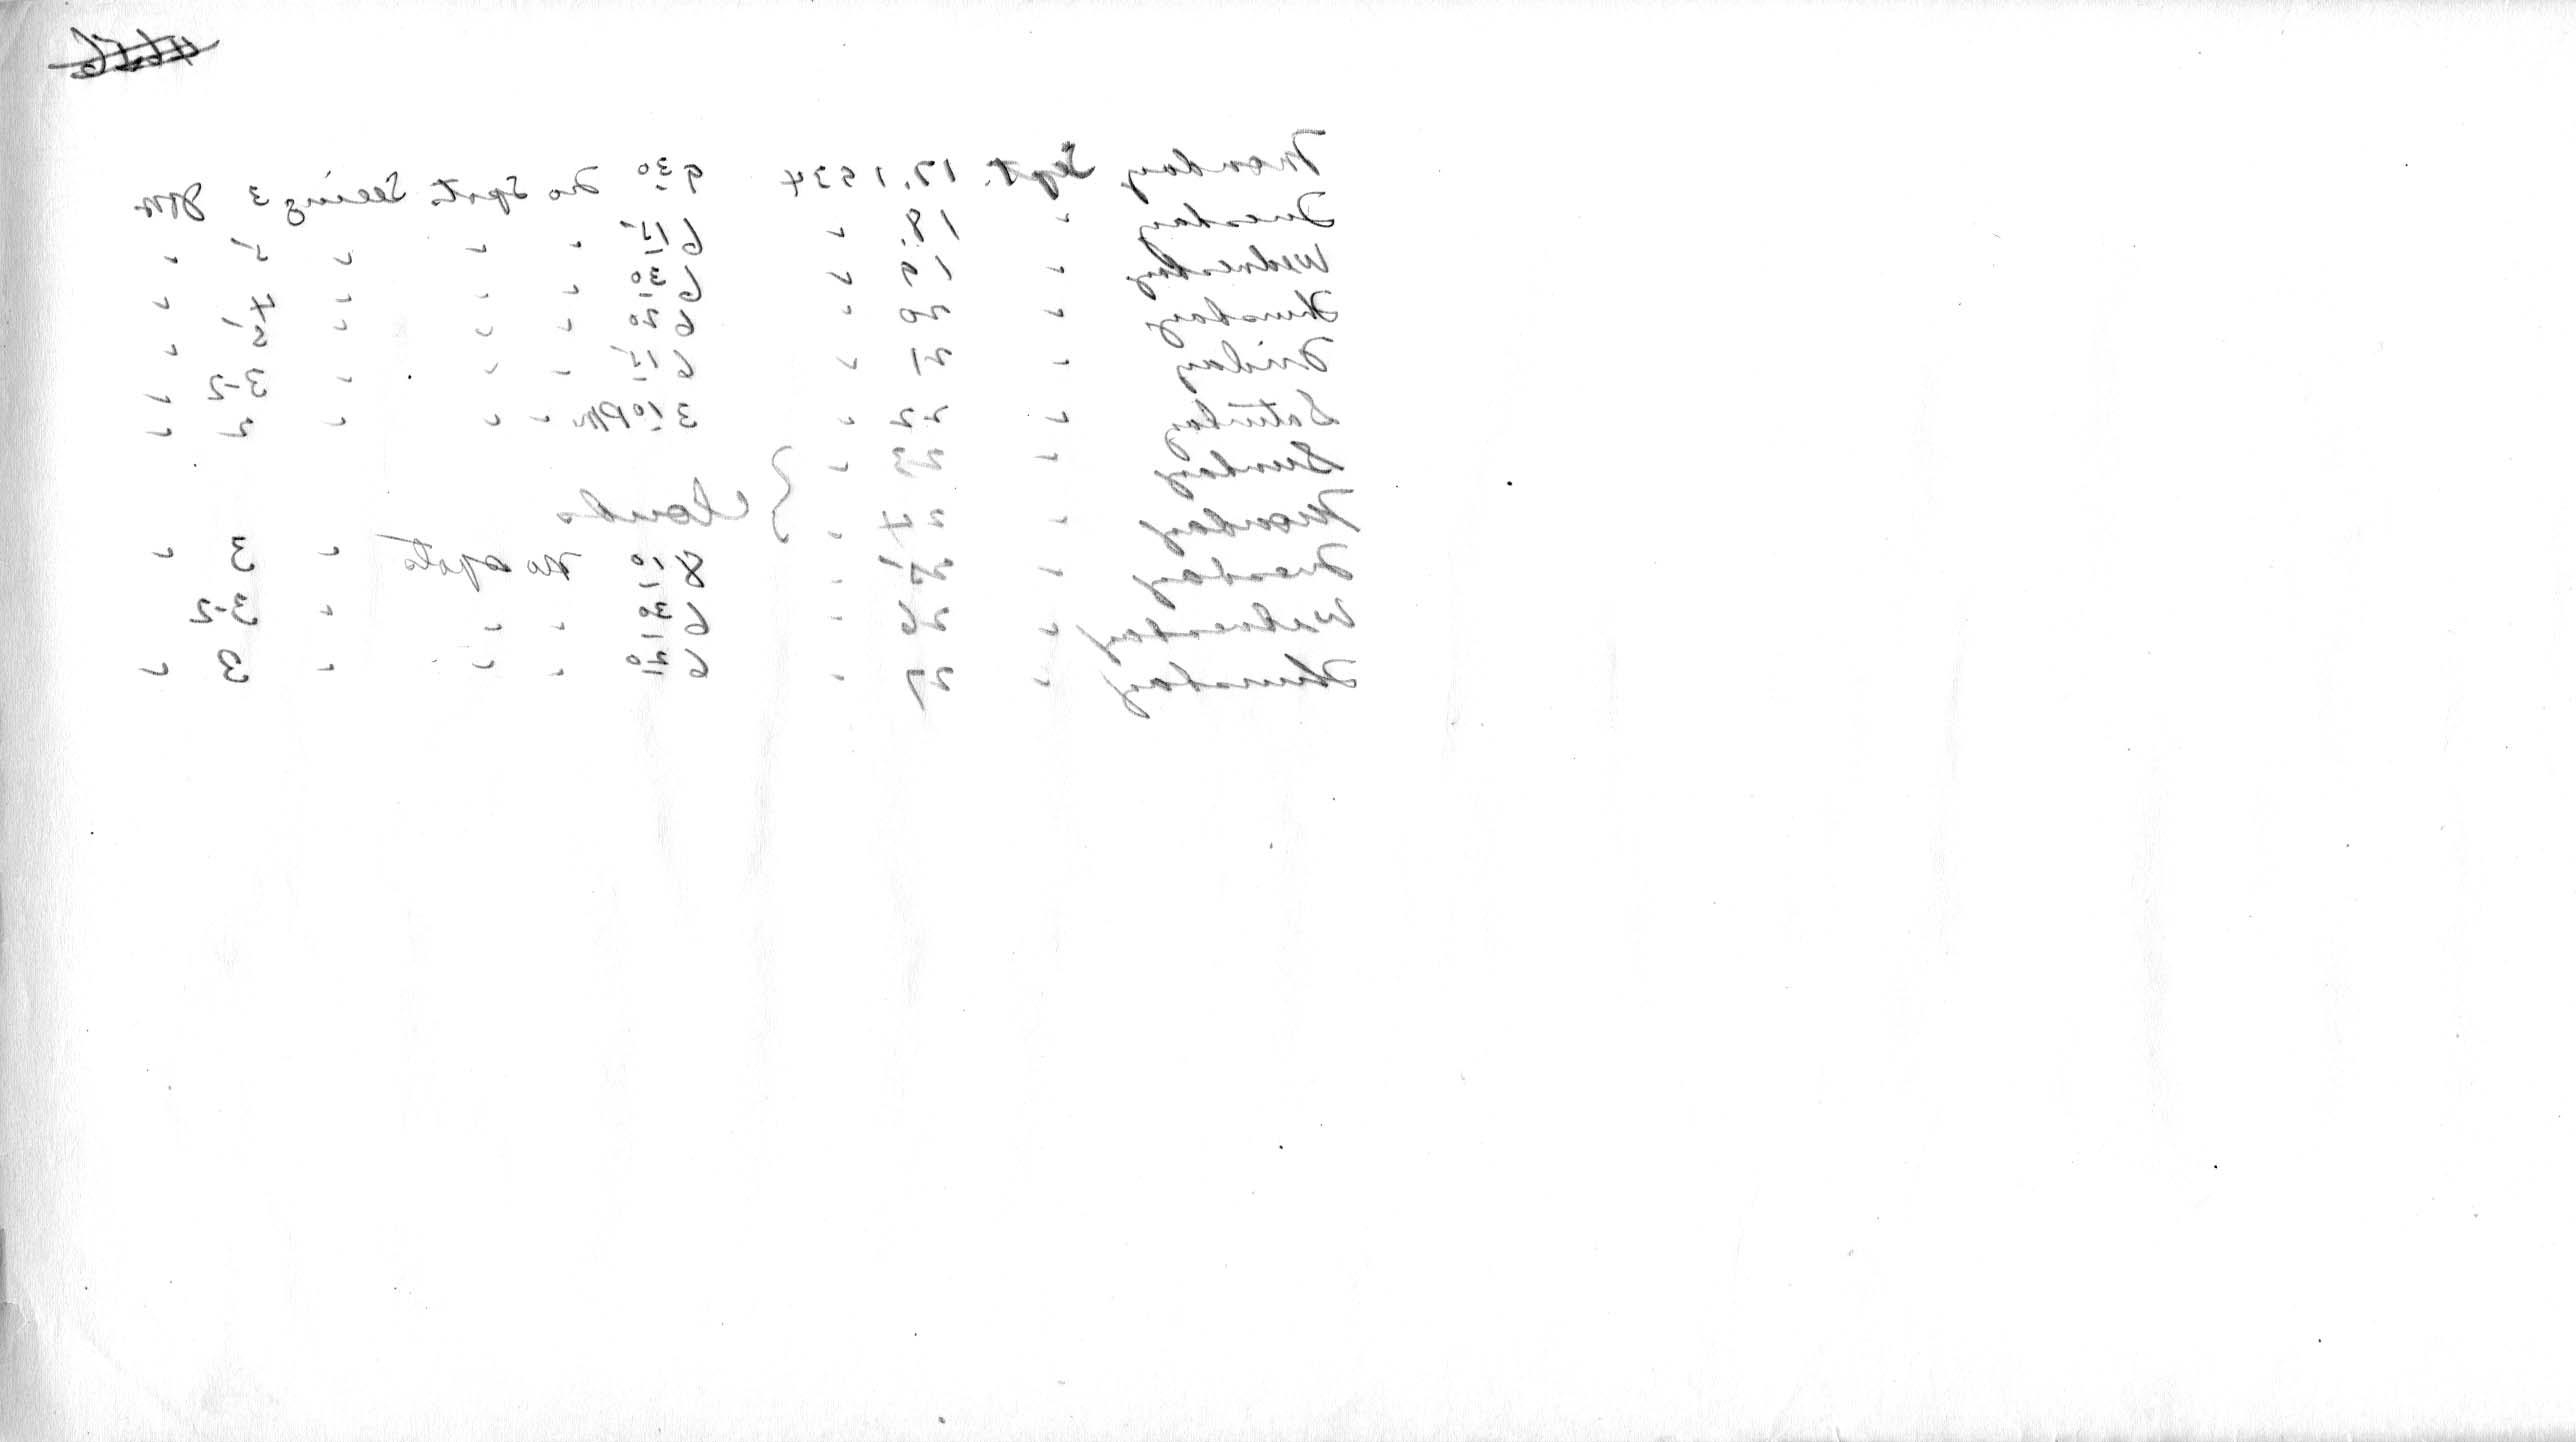 Monday Sept. 17. 1934 9 30 No Spots Seeing 3
Tuesday " 18. " 6 15 " " " 5 "
Wednesday " 19 " 6 30 " " " 4 "
Thursday " 20 " 6 20 " " " 5 "
Friday " 21 " 6 15 " " " 3-2 "
Saturday " 22 " 3 10 PM " " " 2 "
Sunday " 23 "
Monday " 24 " } Clouds
Tuesday " 25 " 8 10 No spots " 3 "
Wednesday " 26 " 6 30 " " " 3-2
Thursday " 27 " 6 " " " 3 "